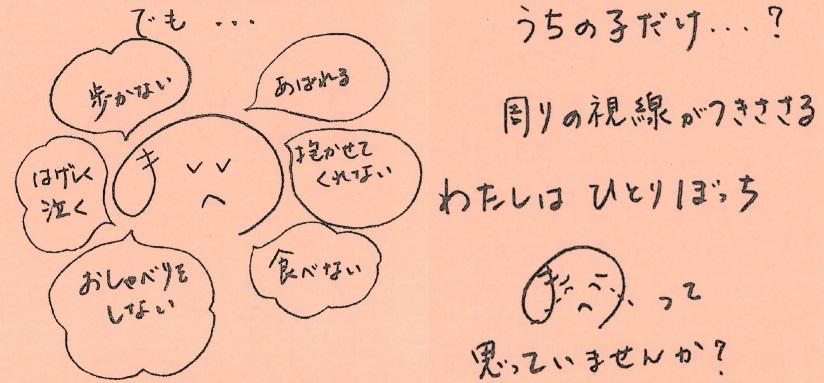 でも ...
歩かない
あばれる
はげしく
泣く
抱かせて
くれない
おしゃべりを
しない
食べない
うちの子だけ...?
周りの視線がつきささる
わたしは ひとりぼっち
って
思っていませんか?